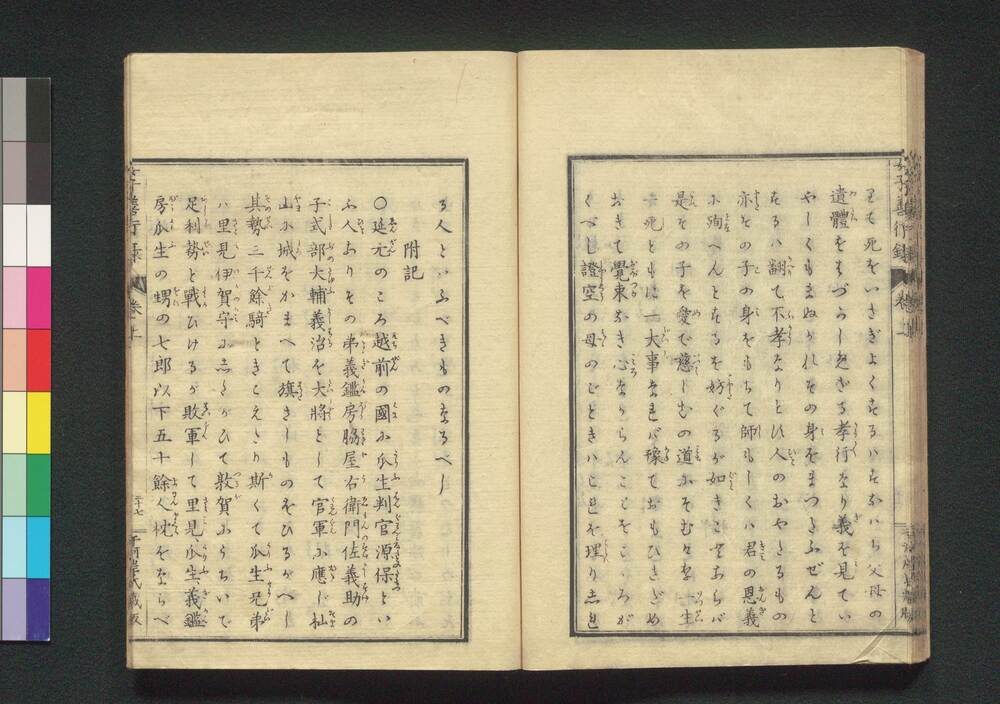 まも死をいさぎよくするハすなハち父母の
遺體をはづかしめざる孝行なり義を見てい
やしくもまぬがれその身をまつたふぜんと
するハ翻て不孝なりとひ人のおやたるもの
亦その子の身をもちて師もしくハ君の恩義
に殉へんとするを妨ぐるが如きことあらバ
是その子を愛で慈しむの道にそむくを一生
一死ともに一大事なれバ豫ておもひさだめ
おきて覺束なき心ならんことをこゝろが
くべし證空の母のごときハこれを理りしれ
る人といふべきものなるべし
附記
〇延元のころ越前の國に瓜生判官源保とい
ふ人ありその弟義鑑房脇屋右衛門佐義助の
子式部大輔義治を大將として官軍に應じ杣
山に城をかまへて旗きしものぞひるがへし
其勢三千餘騎ときこえたり斯くて瓜生兄弟
ハ里見伊賀守にしたがひて敦賀にうちいで
足利勢と戰ひけるが敗軍して里見瓜生義鑑
房瓜生の甥の七郎以下五十餘人枕をならべ
女子善行録 卷上